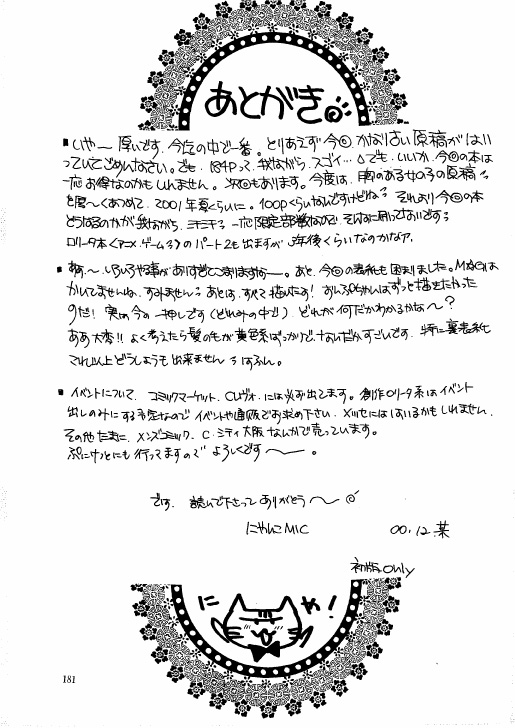 あとがき
■いや〜厚いです。今迄の中で一番。とりあえず今回かなり古い原稿がはい
っていてごめんなさい。でも、184Pって、我ながら、スゴイ…。でも、いいか、今回の本は
一応お得なのかもしれません。次回もあります。今度は、胸のある女の子の原稿を
と〜くあつめて、2001年夏くらいに。100Pくらいなんですけどね。それより今回の本
どうなるのかが我ながら、ミモミモ。一応限定部数なので、そんなに刷ってないです。
ロリータ本〈アニメ・ゲーム〉のパート2も出ますが、半年後くらいなのかなァ。
■あぁ〜いろいろや事がありすぎてこまりますなー。あと、今回の表紙も困りました。
かいてませんね、すみません。あとは、すべて描いたす!おんぷちゃんはずっと描きたかった
のだ!実は今の一押しです(どれみの中で)どれが何だかわかるかな〜?
ああ大変!!よく考えたら髪の毛が黄色系ばっかりで、なんだかすごいです。特に裏表紙
これ以上どうしようも出来ません。はふん。
■イベントについて、コミックマーケット、Cレヴォ、には必ず出てます。創作ロリータ系はイベント
出しのみにする予定なのでイベントや通販でお求め下さい。メッセにははいるかもしれません。
その他たまに、メンズコミック、C・シティ大阪なんかで売っています。
ぷにけっとにも行ってますのでよろしくです〜。
では、読んで下さってありがとう〜
にゃんこMIC 00.12.某
初版only
にゃ!
181